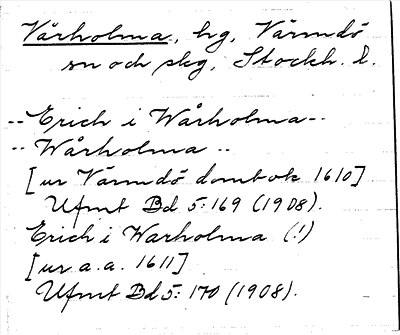 Vårholma, hg, Värmdö
sn och skg, Stockh. l.
-- Erich i Wårholma --
-- Wårholma --
[ur Värmdö dombok 1610]
Ufmt Bd 5:169 (1908).
Erich i Warholma (!)
[ur a.a. 1611]
Ufmt Bd 5: 170 (1908).